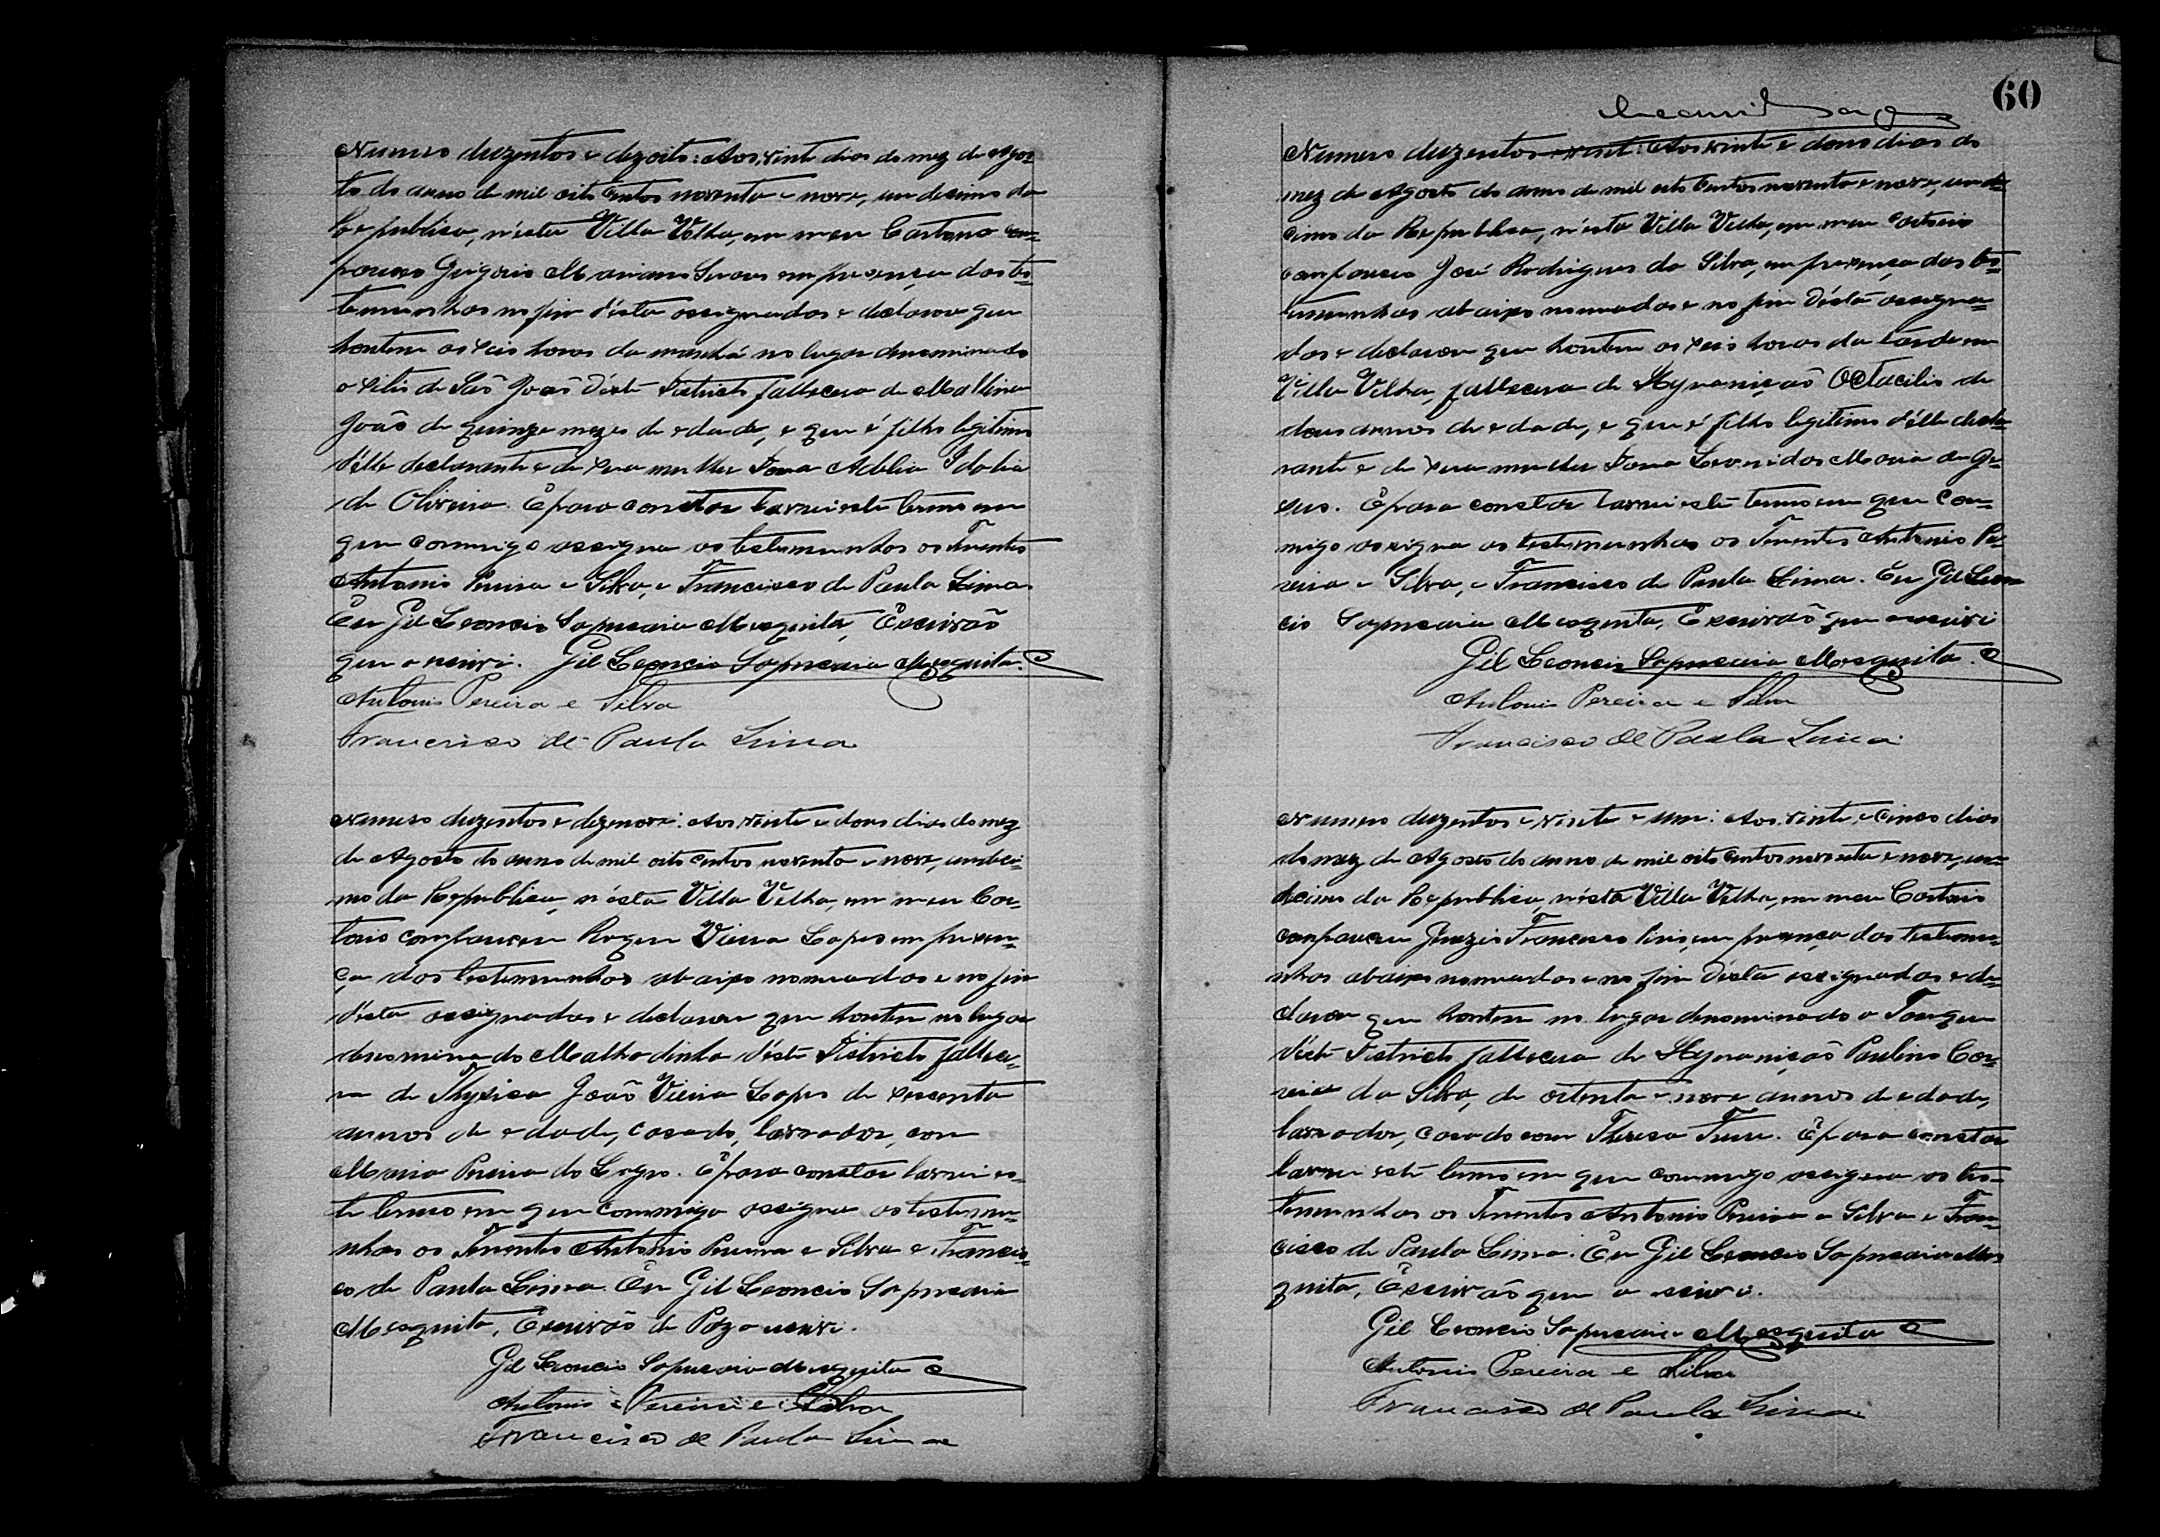 Numero duzentos e dezoito: Aos vinte dias do mez de Agos-
to do anno de mil oito centos noventa e nove, undecimo da
Republica, n'ésta Villa Velha, em meu Cartorio com-
pareceo Grigorio Mariano em presença das tes-
temunhas no fim d'ésta assignadas e declarou que
hontem as seis horas da manhã no lugar denominado
o sitio de São João d'éste Districto falleceu de
João de quinze mezes de edade, e que é filho legitimo
d'élle declarante e de sua mulher Dona Adelia Idalia
de Oliveira. E para constar lavrei este termo em
que commigo assigna as testemunhas os Tenentes
Antonio Pereira e Silva, e Francisco de Paula Lima
Eu Gil Leoncio Sapucaia Mesquita, Escrivão
que o escrivi. Gil Leoncio Sapucaia Mesquita.
Antonio Pereira e Silva
Francisco de Paula Lima
Numero duzentos e dezenove: Aos vinte e dous dias do mez
de Agosto do anno de mil oito centos noventa e nove, undeci-
mo da Republica, n'ésta Villa Velha, em meu Car-
torio compareceu Roger Vieira Lopes em presen-
ça das testemunhas abaixo nomeadas e no fim
d'ésta assignadas e declarou que hontem no lugar
denominado Malhadinha d'éste Districto fallece-
ra de Thysica João Vieira Lopes de sessenta
annos de edade, casado, lavrador, com
Maria Pereira do Lago. E para constar lavrei es-
te termo em que commigo assigna as testemu-
nhas os Tenentes Antonio Pereira e Silva e Francis-
co de Paula Lima. Eu Gil Leoncio Sapucaia
Mesquita, Escrivão de Paz o escrivi.
Gil Leoncio Sapucaia Mesquita
Antonio Pereira e Silva
Francisco de Paula Lima
60
Numero duzentos e vinte: Aos vinte e dous dias do
mez de Agosto do anno de mil oito centos noventa e nove, unde-
cimo da Republica, n'ésta Villa Velha, em meu Cartorio
compareceu José Rodrigues da Silva, em presença das tes-
temunhas abaixo nomeadas e no fim d'ésta assigna-
das e declarou que hontem as seis horas da tarde em
Villa Velha, fallecera de Octacilio de
dous annos de edade, e que é filho legitimo d'élle decla-
rante e de sua mulher Dona Leonidas Maria de Je-
sus. E para constar lavrei este termo em que com-
migo assigna as testemunhas os Tenentes Antonio Pe-
reira e Silva, e Francisco de Paula Lima. Eu Gil Leon
cio Sapucaia Mesquita, Escrivão que o escrivi
Gil Leoncio Sapucaia Mesquita.
Antonio Pereira e Silva
Francisco de Paula Lima
Numero duzentos e vinte e um: Aos vinte e cinco dias
do mez de Agosto do anno de mil oito centos noventa e nove, un-
decimo da Republica, n'ésta Villa Velha, em meu Cartorio
compareceu Francisco em presença das testemu-
nhas abaixo nomeadas e no fim d'ésta assignadas e de-
clarou que hontem no lugar denominado o Tanque
d'éste Districto fallecera de Paulino Cor-
reia da Silva, de oitenta e nove annos de edade,
lavrador, casado com Thereza. E para constar
lavrei este termo em que commigo assigna as tes-
temunhas os Tenentes Antonio Pereira e Silva e Fran-
cisco de Paula Lima. Eu Gil Leoncio Sapucaia Mes
quita, Escrivão que o escrivi.
Gil Leoncio Sapucaia Mesquita
Antonio Pereira e Silva
Francisco de Paula Lima